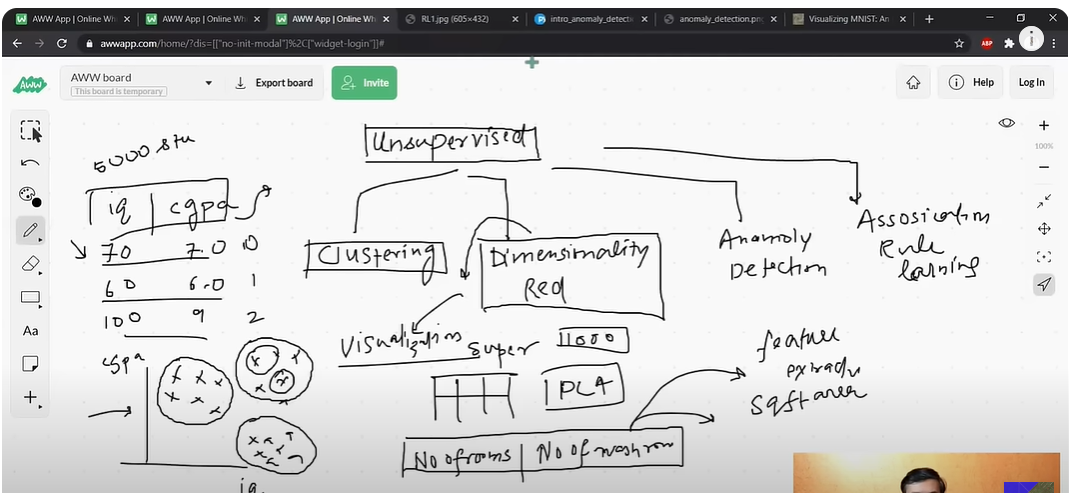 AWW App | Online Wh
AWW App | Online Wh
AWW App | Online Wh
RL1.jpg (605×432)
intro_anomaly_detecti
anomaly_detection.pn
Visualizing MNIST: An
awwapp.com/home/?dis=[["no-init-modal"]%2C["widget-login"]]#
ABP
AWW
AWW board
This board is temporary
Export board
Invite
Help
Log In
100%
Aa
5000 stu
iq | cgpa
70 7.0 0
60 6.0 1
100 9 2
cgpa
iq
Unsupervised
Clustering
Dimensionality
Red
Anomaly
Detection
Assosication
Rule
larning
Visualization
super
1000
PCA
feature
extradn
Sqft area
No of rooms | No of washroom